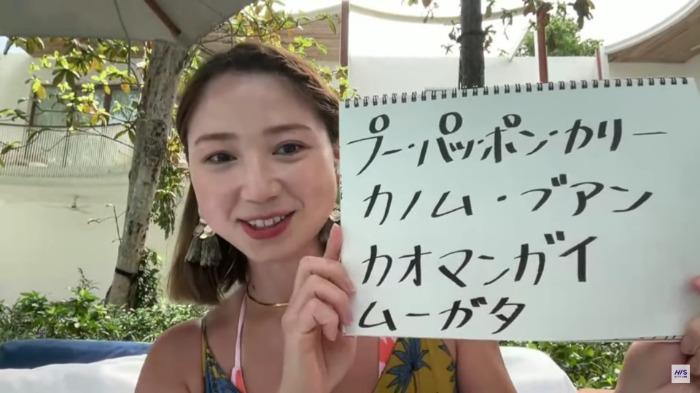 プー・パッ・ポン・カリー
カノム・ブアン
カオマンガイ
ムーガタ
HIS